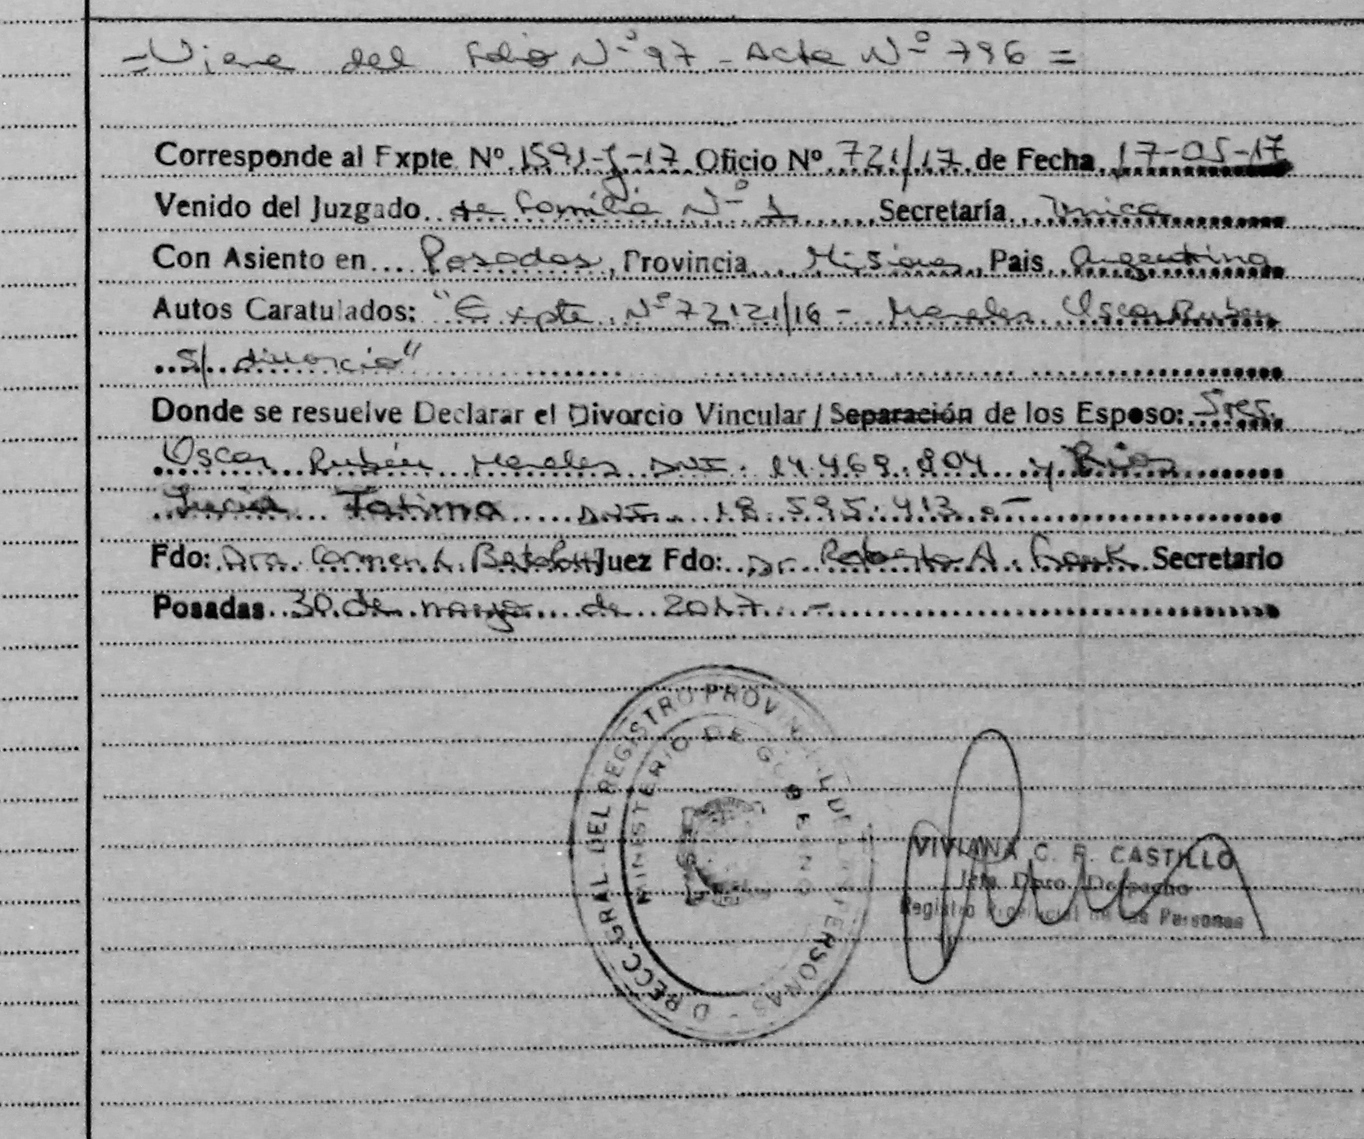 =Viene del Folio Nº 97 - Acta Nº 796 =
Corresponde al Expte. Nº 1591-J-17 Oficio Nº 721/17 de Fecha 17-05-17
Venido del Juzgado de Familia Nº 1 Secretaría Unica
Con Asiento en Posadas, Provincia Misiones, Pais Argentina
Autos Caratulados: "Expte. Nº 72121/16 - Morales Oscar Ruben
S/ divorcio"
Donde se resuelve Declarar el Divorcio Vincular / Separación de los Esposo: Sres.
Oscar Rubén Morales DNI. 14.469.804 y Rios
Lucia Fatima DNI. 18.595.413.-
Fdo: Dra. Carmen Juez Fdo: Dr. Roberto A. Secretario
Posadas 30 de mayo de 2017.-
DIRECC. GRAL. DEL REGISTRO PROVINCIAL DE LAS PERSONAS -
MINISTERIO DE GOBIERNO
VIVIANA C. R. CASTILLO
Jefa Dpto. Despacho
Registro Provincial de las Personas